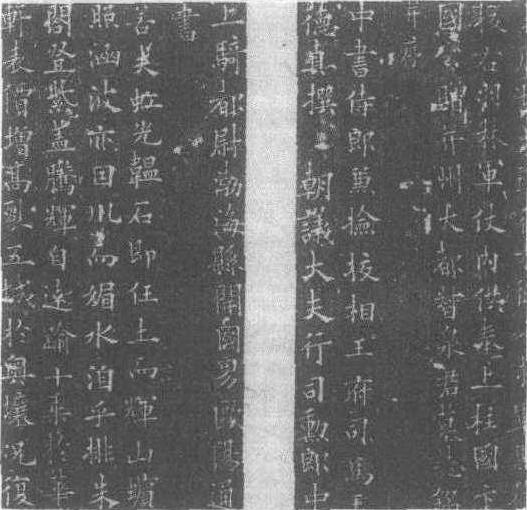 校右羽林軍仗內供奉上柱國卞
國公贈并州大都督泉君墓誌銘
并序
中書侍郎兼撿挍相王府司馬王
德真撰 朝議大夫行司勳郎中
上騎都尉渤海縣開國男歐陽通
書
若夫虹光韞石即任土而輝山蠙
照涵波亦因川而媚水洎乎排朱
閣登紫蓋騰輝自遠踰十乘於華
軒表價增高裂五城於奧壤況復